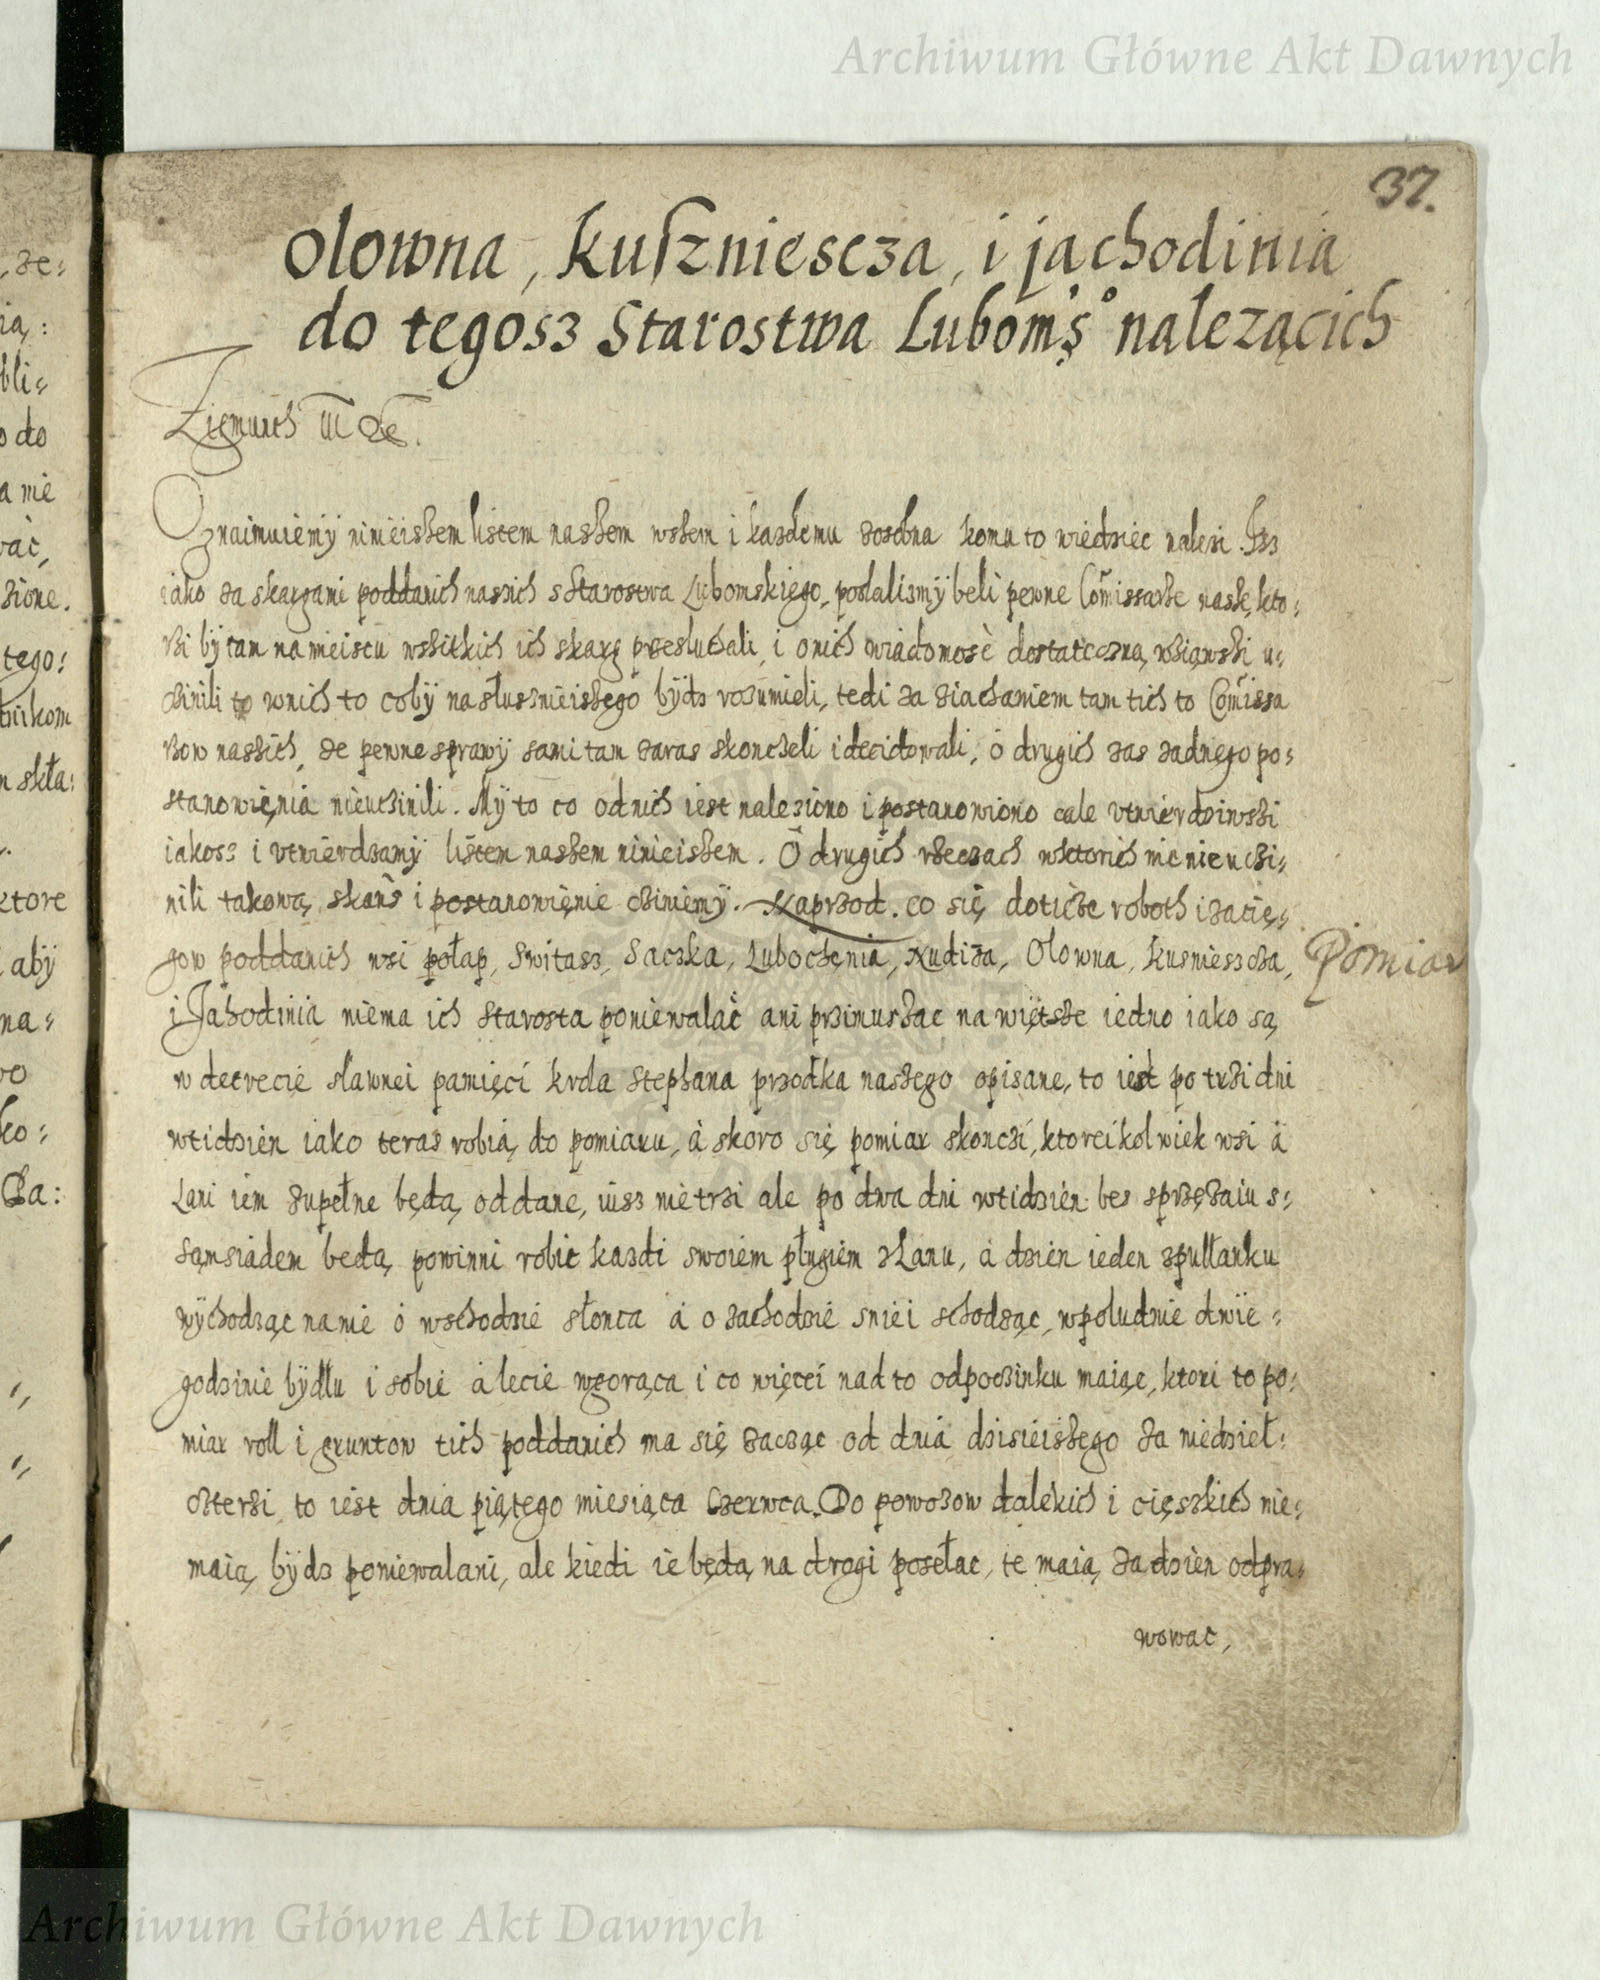 Archiwum Główne Akt Dawnych
37.
Olowna, Kuszniescza, i jachodinia
do tegosz Starostwa Lubomṣ° nalezącich
Zigmunth III &c.
Oznaimuiemÿ ninieiszem listem naszem wszem i kazdemu zosobna komu to wiedziec nalezi. Isz
iako za skargami poddanich naszich z Starostwa Lubomskiego, posłalismÿ beli pewne Comissarze nasze, kto:
rzi bÿ tam na mieiscu wszitkich ich skarg przesluchali, i o nich wiadomosc dostateczną wziąwszi u:
czinili to w nich to co bÿ nasłusznieiszego bÿdz rozumieli, tedi za ziachaniem tam tich to Comissa
rzow naszich, ze pewne sprawÿ sami tam zaras skonczeli i decidowali, o drugich zas zadnego po:
stanowięnia nieuczinili. Mÿ to co od nich iest naleziono i postanowiono cale utwierdziwszi
iakosz i utwierdzamÿ listem naszem ninieiszem. O drugich rzeczach w ktorich nic nie uczi:
nili takową i postanowięnie cziniemÿ. Naprzod. co się doticze roboth i zacię:
gow poddanich wsi połap, Switasz, Saczka, Lubochęnia, Nudiza, Olowna, Kusniescza,
Pomiar
i Jahodinia niema ich Starosta poniewalać ani przimuszac na więtsze iedno iako są
w decrecie sławnei pamięci krola Stephana przodka naszego opisane, to iest po trzi dni
w tidzien iako teraz robią do pomiaru, a skoro się pomiar skonczi, ktoreikolwiek wsi a
Łani iem zupełne będą oddane, iusz nie trzi ale po dwa dni w tidzien bes sprzęzaiu s:
sąmsiadem będą powinni robic kazdi swoiem pługiem z Łanu, a dzien ieden z pułłanku
wÿchodząc na nie o wschodzie słonca a o zachodzie z niei schodząc, w poludnie dwie:
godzinie bÿdłu i sobie a lecie w gorąca i co więcei nad to odpoczinku maiąc, ktori to po:
miar roll i gruntow tich poddanich ma się zacząc od dnia dzisieiszego za niedziel:
czterzi, to iest dnia piątego miesiąca Czerwca. Do powozow dalekich i cięszkich nie:
maią bÿdz poniewalani, ale kiedi ie będą na drogi posełac, te maią za dzien odpra:
wowac,
Archiwum Główne Akt Dawnych